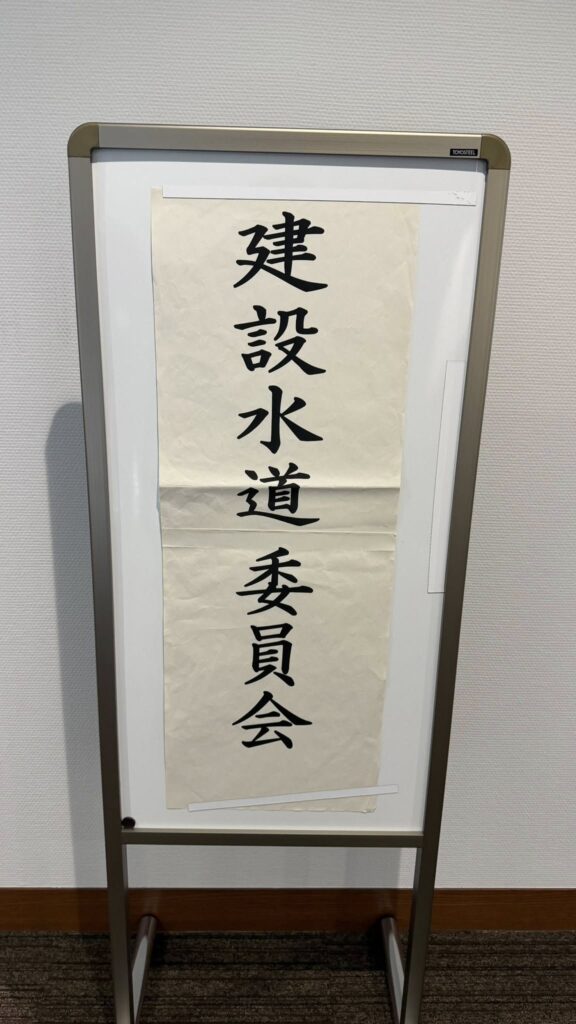 TOYOSTEEL
建設水道委員会